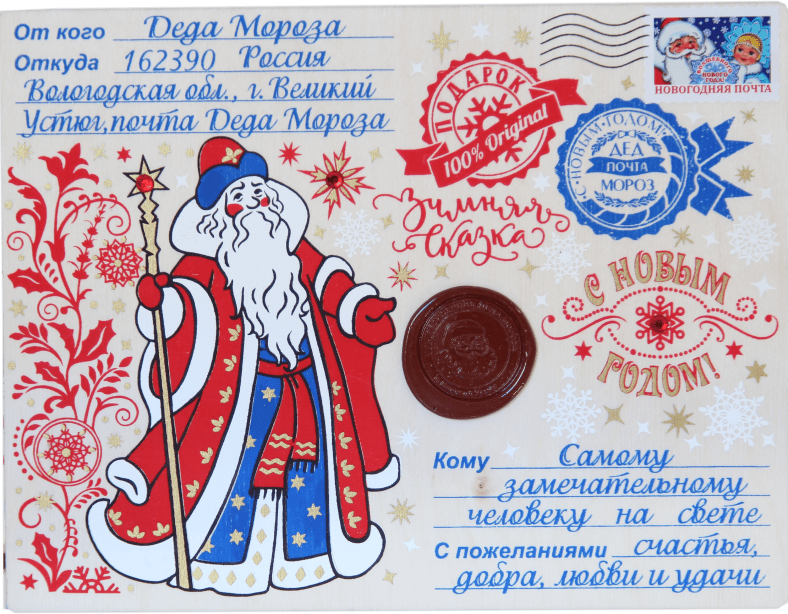 От кого Деда Мороза
Откуда 162390 Россия
Вологодская обл., г. Великий
Устюг, почта Деда Мороза
НОВОГОДНЯЯ ПОЧТА
ПОДАРОК
100% Original
С НОВЫМ ГОДОМ
ДЕД
ПОЧТА
МОРОЗ
Зимняя
сказка
С НОВЫМ
ГОДОМ!
Кому Самому
замечательному
человеку на свете
С пожеланиями счастья,
добра, любви и удачи